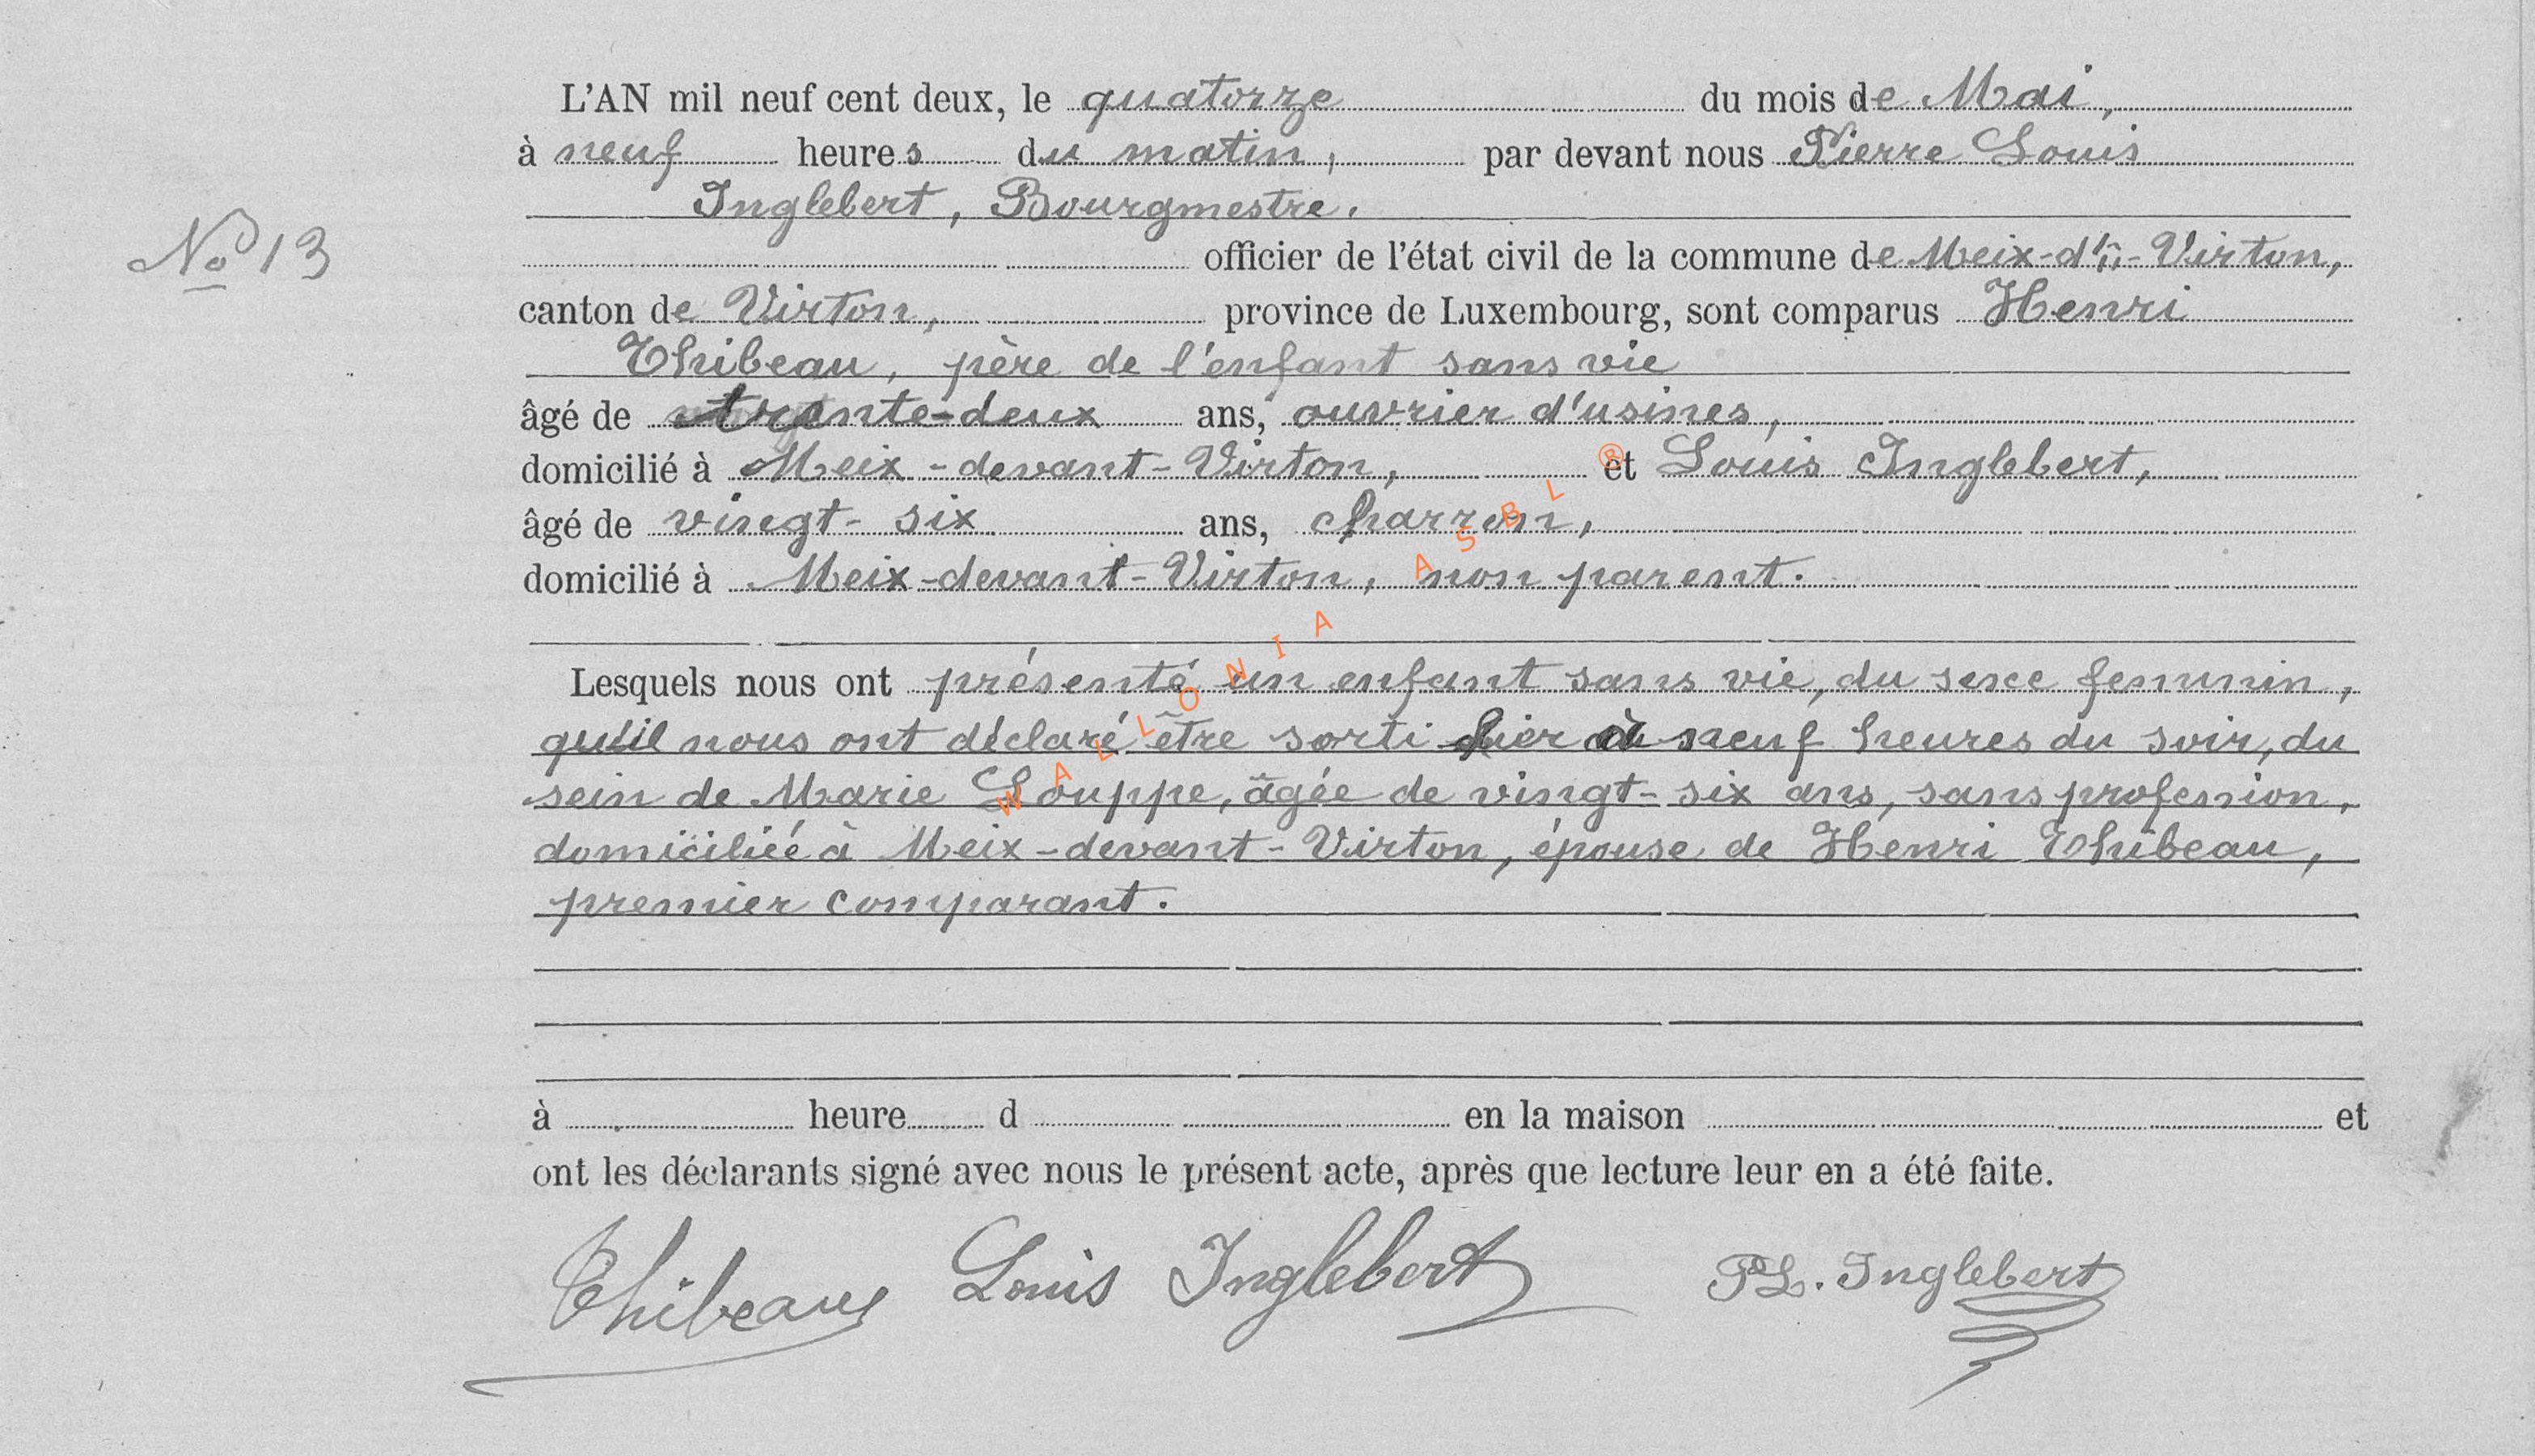 L'AN mil neuf cent deux, le quatorze du mois de Mai,
à neuf heures du matin, par devant nous Pierre Louis
Inglebert, Bourgmestre.
No 13
officier de l'état civil de la commune de Meix-dt-Virton,
canton de Virton, province de Luxembourg, sont comparus Henri
Thibeau, père de l'enfant sans vie
âgé de trente-deux ans, ouvrier d'usines,
domicilié à Meix-devant-Virton, et Louis Inglebert,
âgé de vingt-six ans, charron,
domicilié à Meix-devant-Virton, non parent.
Lesquels nous ont présenté un enfant sans vie, du sexe feminin,
qu'il nous ont déclaré être sorti hier à neuf heures du soir, du
sein de Marie Louppe, âgée de vingt-six ans, sans profession,
domiciliée à Meix-devant-Virton, épouse de Henri Thibeau,
premier comparant.
à heure d en la maison et
ont les déclarants signé avec nous le présent acte, après que lecture leur en a été faite.
Thibeau Louis Inglebert PL. Inglebert
WALLONIA ASBL ®